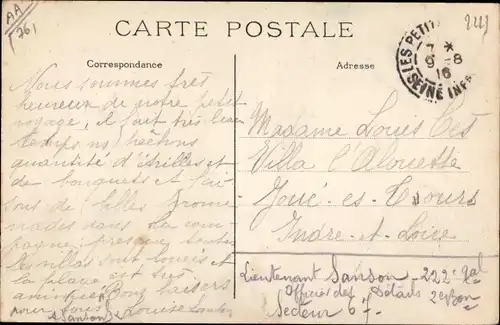 AA
(76)
CARTE POSTALE
Correspondance
Adresse
LES PETIT
7 *
9 -8
16
SEINE INFRE
Nous sommes très
heureux de notre petit
voyage, il fait très beau
temps ns pêchons
quantité d'étrilles et
de bouquets et fai
sons de belles prome
nades dans la cam
pagne; presque toutes
les villas sont louées et
la plage est très
animée Bons baisers
pour tous Louise Sanson
Madame Louis
Villa l'Alouette
Joué-es-Tours
Indre-et-Loire
Lieutenant Sanson - 222e
Officier des Détails 2e Bon
Secteur 67